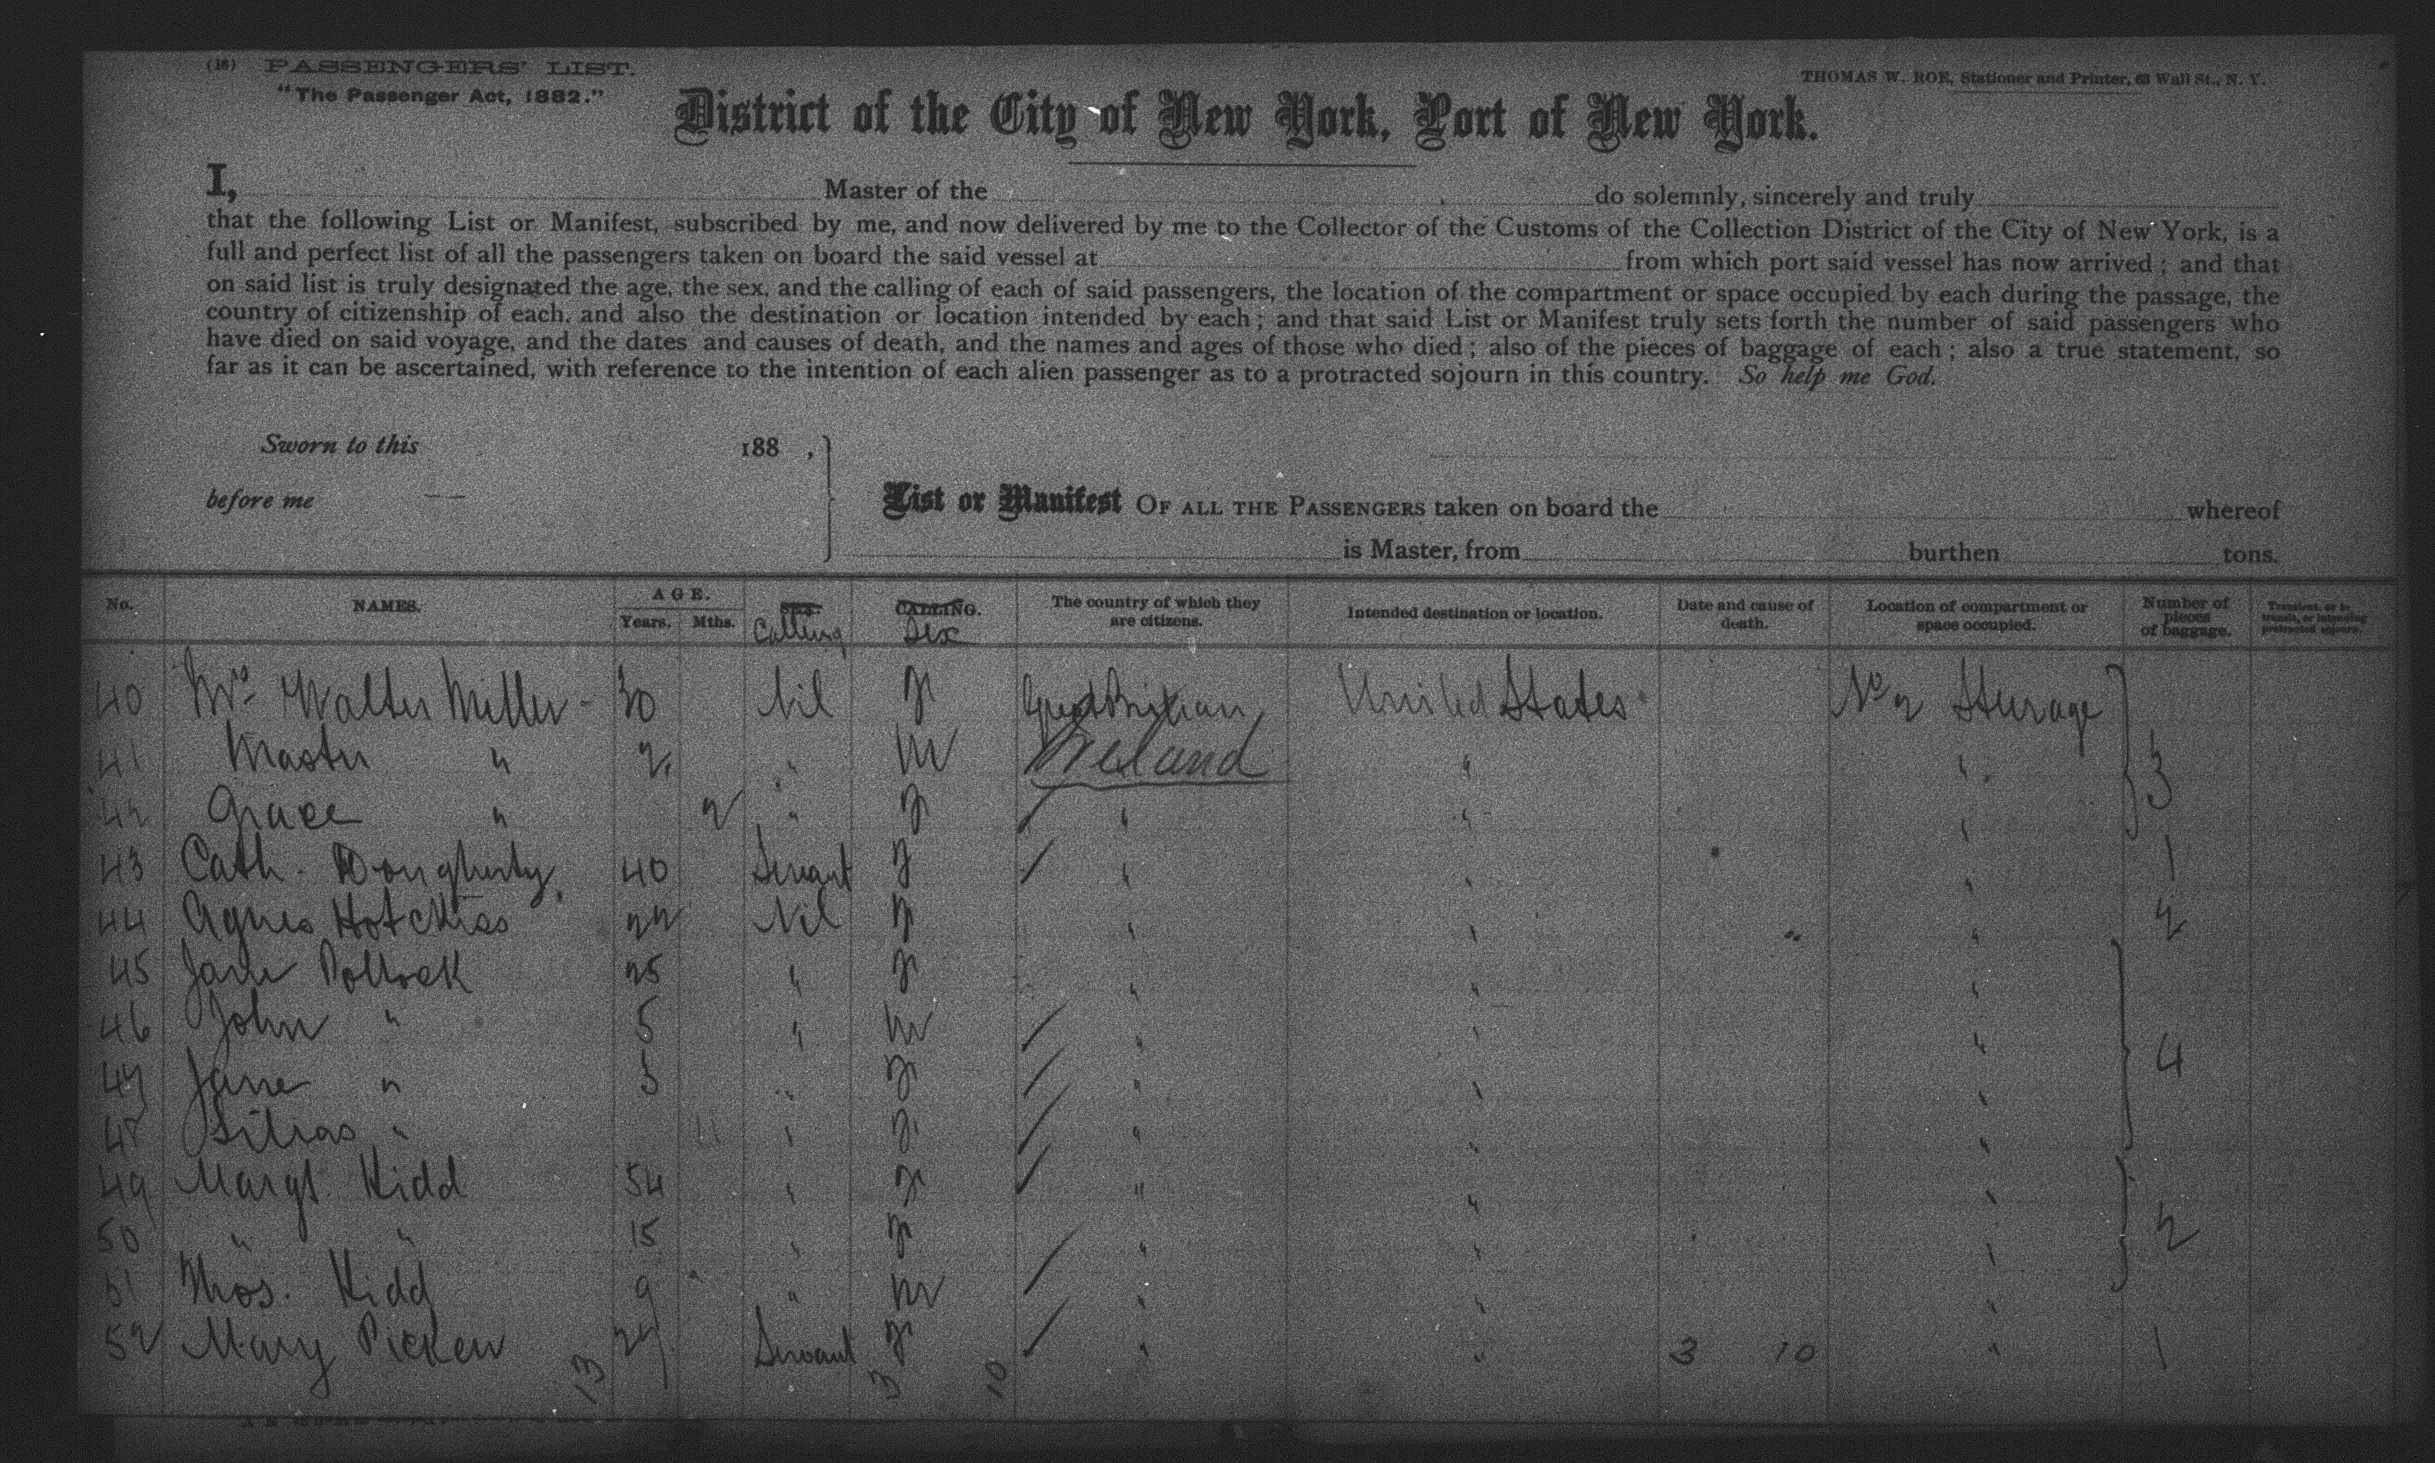 (18) PASSENGERS' LIST.
"The Passenger Act, 1882."
THOMAS W. ROE, Stationer and Printer, 63 Wall St., N. Y.
District of the City of New York, Port of New York.
I, Master of the do solemnly, sincerely and truly
that the following List or Manifest, subscribed by me, and now delivered by me to the Collector of the Customs of the Collection District of the City of New York, is a
full and perfect list of all the passengers taken on board the said vessel at from which port said vessel has now arrived; and that
on said list is truly designated the age, the sex, and the calling of each of said passengers, the location of the compartment or space occupied by each during the passage, the
country of citizenship of each, and also the destination or location intended by each; and that said List or Manifest truly sets forth the number of said passengers who
have died on said voyage, and the dates and causes of death, and the names and ages of those who died; also of the pieces of baggage of each; also a true statement, so
far as it can be ascertained, with reference to the intention of each alien passenger as to a protracted sojourn in this country. So help me God.
Sworn to this 188 ,
before me
List or Manifest OF ALL THE PASSENGERS taken on board the whereof
is Master, from burthen tons.
No. NAMES. AGE. Years. Mths. SEX. Calling CALLING. Sex The country of which they are citizens. Intended destination or location. Date and cause of death. Location of compartment or space occupied. Number of pieces of baggage. Transient, or in transit, or intending protracted sojourn.
40 Mrs Walter Miller - 30 Nil F Great Britian United States No 2 Sturage
41 Master " 2 " M Ireland " " 3
42 Grace " 2 " F " " "
43 Cath. Dougherty 40 Servant F " " " 1
44 Agnes Hotchkiss 22 Nil F " " " 2
45 Jane Pollock 25 " F " " "
46 John " 5 " M " " "
47 Jane " 3 " F " " " 4
48 " 11 " F " " "
49 Margt. Kidd 54 " F " " "
50 " " 15 " F " " " 2
51 Thos. Kidd 9 " M " " "
52 Mary Picken 27 Servant F " " 3 10 " 1
13 3 10